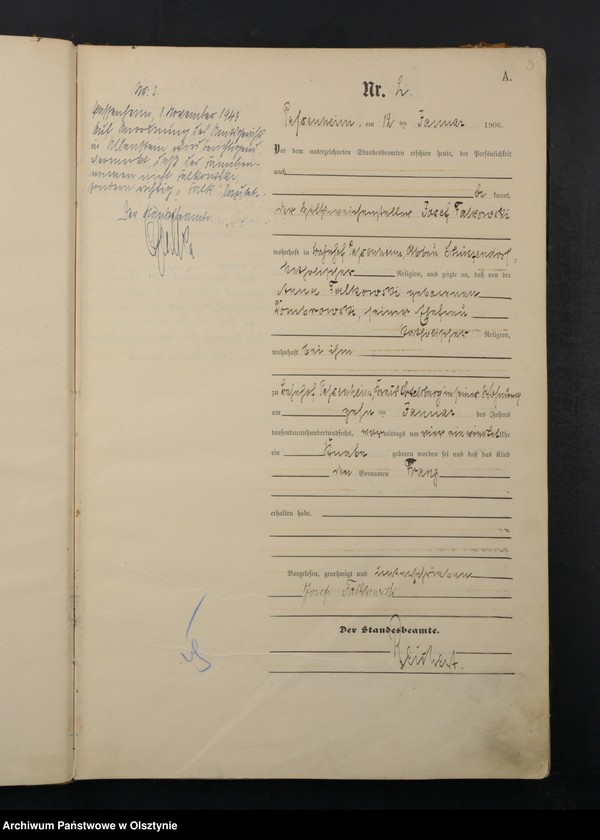 A.
Nr. 2.
Passenheim, am 12 ten Januar 1906.
Vor dem unterzeichneten Standesbeamten erschien heute, der Persönlichkeit
nach
be kannt,
der Hilfsweichensteller Josef Falkowski
wohnhaft in Bahnhof Passenheim, Abbau Schützendorf,
katholischer Religion, und zeigte an, daß von der
Anna Falkowski geborenen
Dombrowski, seiner Ehefrau
katholischer Religion,
wohnhaft bei ihm
zu Bahnhof Passenheim, Kreis Ortelsburg in seiner Wohnung
am zehn ten Januar des Jahres
tausendneunhundertundsechs, vormittags um vier ein viertel Uhr
ein Knabe geboren worden sei und daß das Kind
den Vornamen Franz
erhalten habe.
Vorgelesen, genehmigt und unterschrieben
Josef Falkowski
Der Standesbeamte.
Reichert.
Nr. 2.
Passenheim, 1. November 1943
Auf Anordnung des Amtsgerichts
in Allenstein wird
vermerkt, daß der Familien-
namen nicht Falkowski
sondern richtig, Falk lautet.
Der Standesbeamte
Archiwum Państwowe w Olsztynie